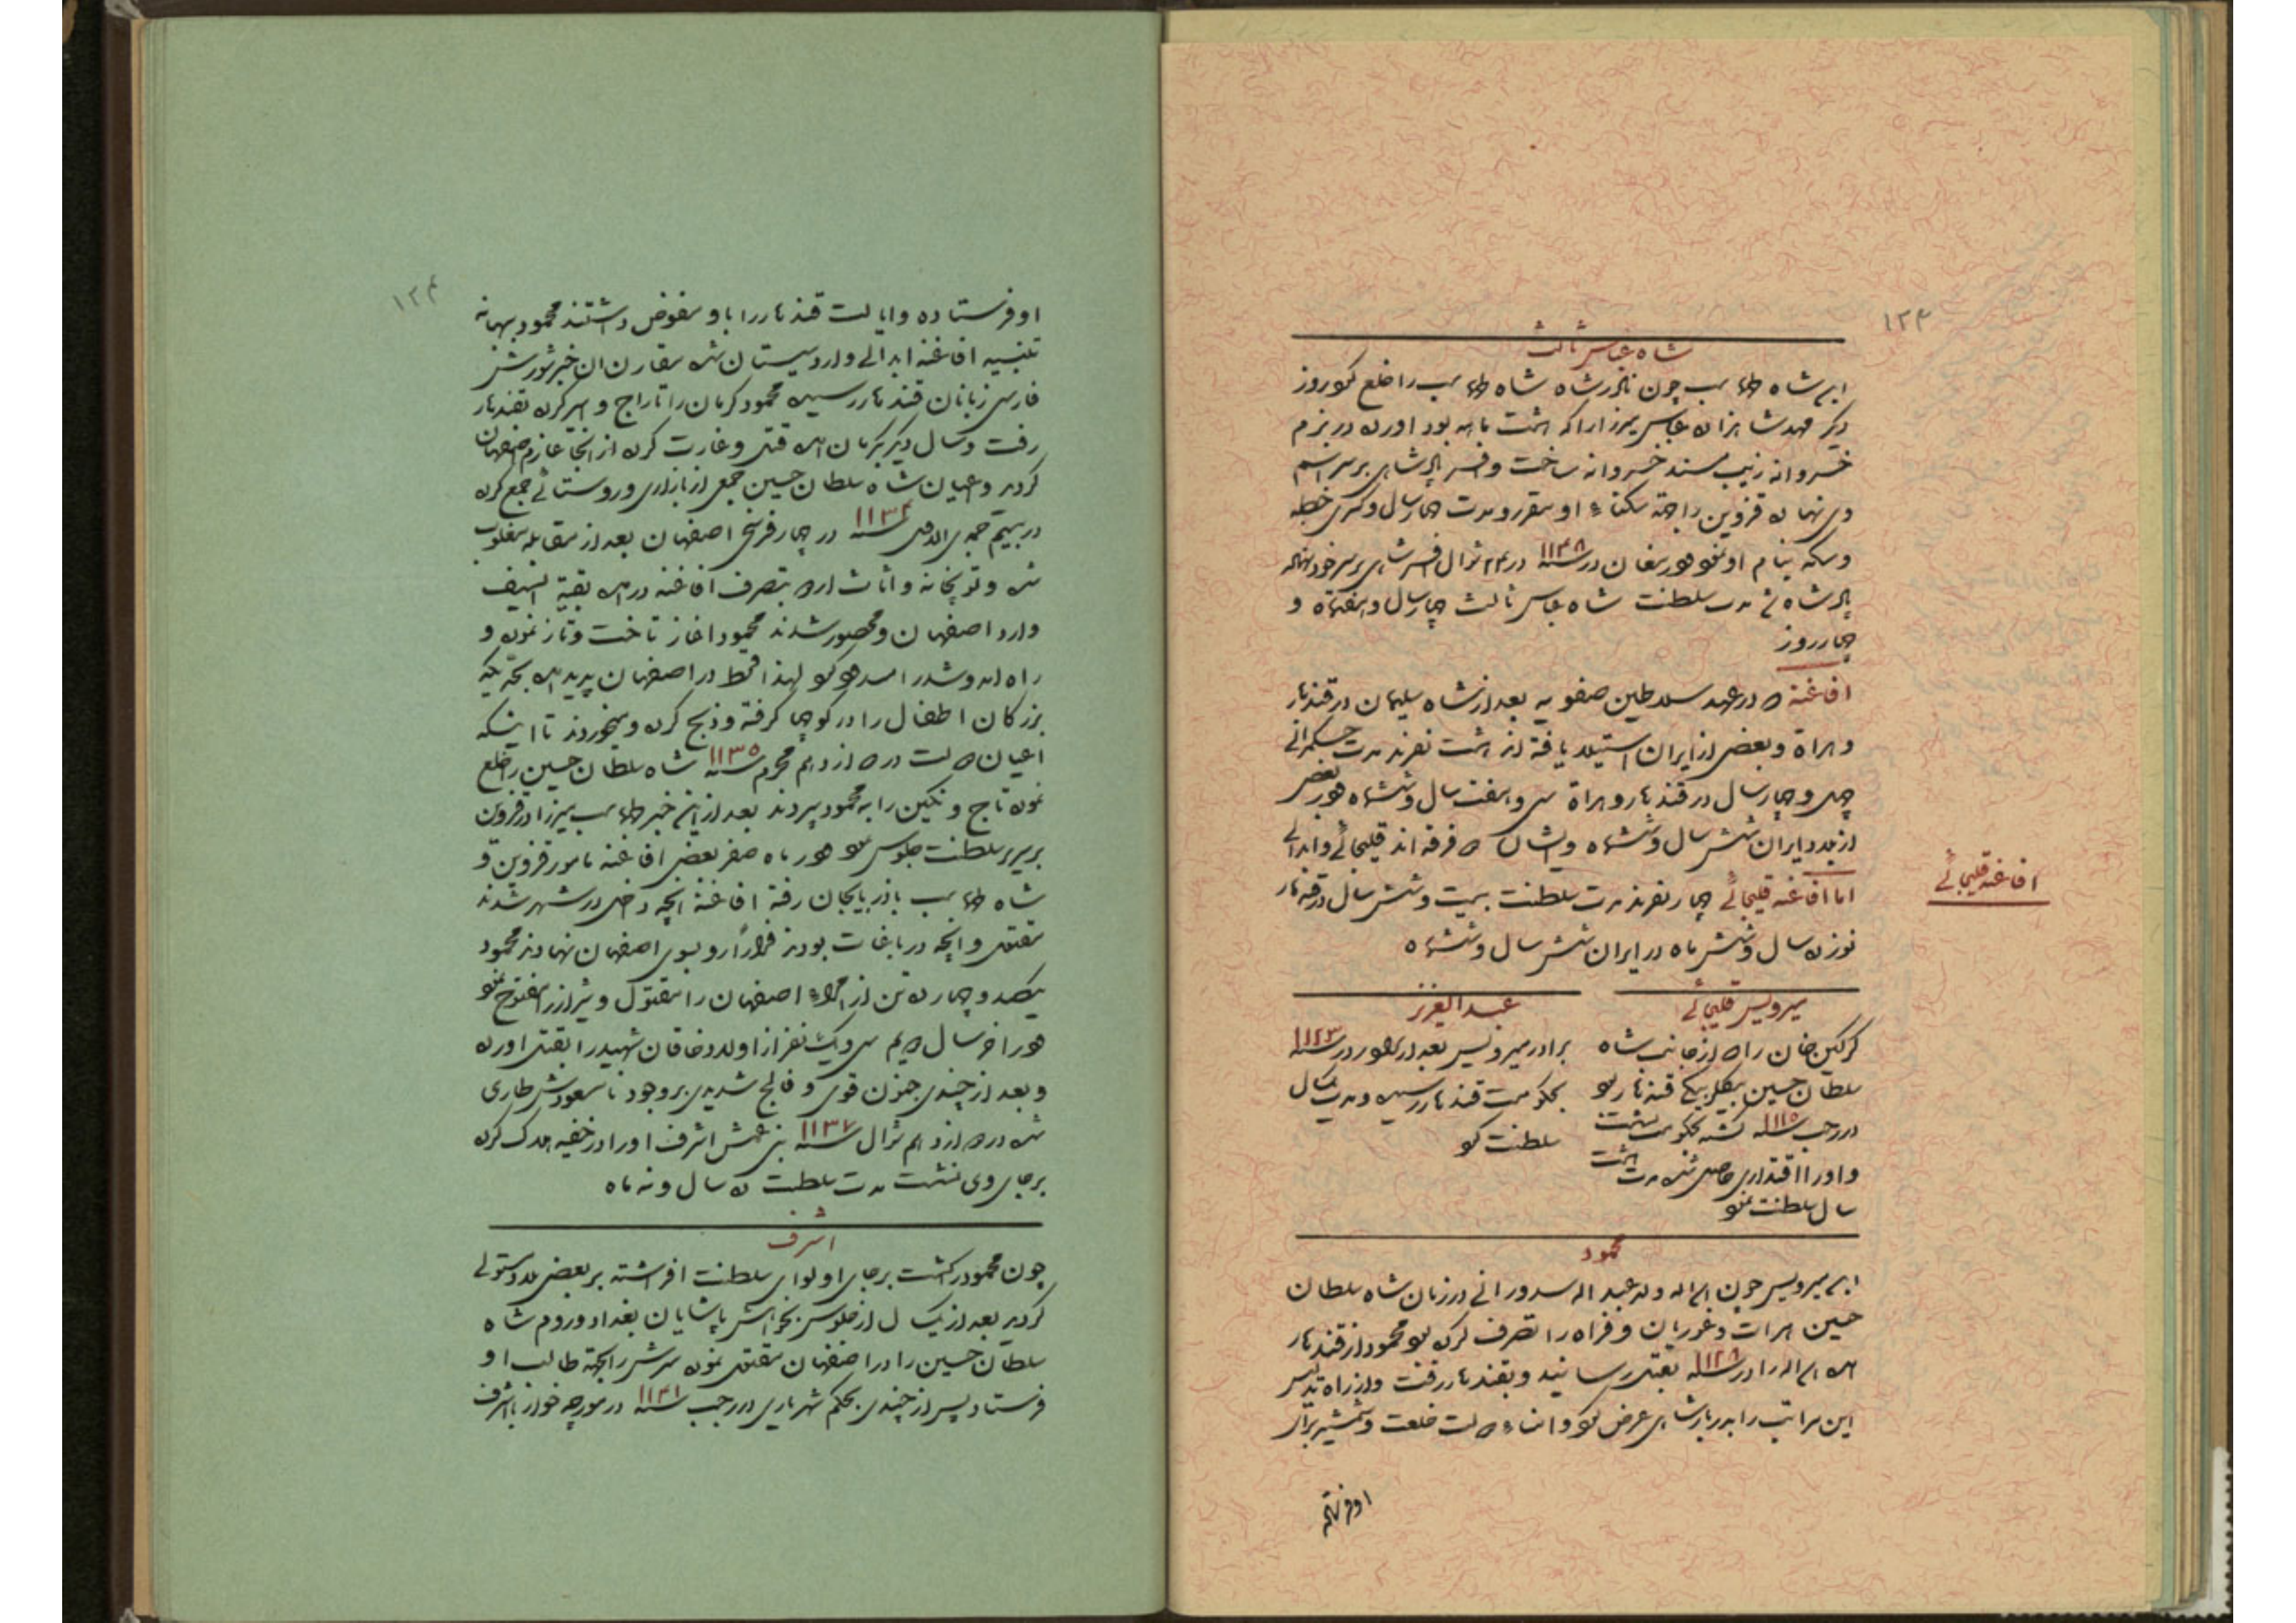 ۱۲۳
شاه عباس ثالث
ابن شاه طهماسب چون نادرشاه شاه طهماسب را خلع نمود روز
دیگر مهد شاهزاده عباس میرزا را که هشت ماهه بود آورده در بزم
خسروانه زینب مسند خسروانه ساخت و افسر پادشاهی بر سر اسم
وی نهاده قزوین را جهة سکناء او مقرر و مدت چهار سال و کسری خطبه
و سکه بنام او نمود در مغان در سنه ۱۱۴۸ در ۲۴ شوال افسر شاهی بر سر خود نهاده
پادشاه شد مدت سلطنت شاه عباس ثالث چهار سال و هفتماه و
چهار روز
افاغنه که در عهد سلاطین صفویه بعد از شاه سلیمان در قندهار
و هراة و بعضی از ایران استیلا یافته اند هشت نفرند مدت حکمرانی
چهل و چهار سال در قندهار و هراة سی و هفت سال و ششماه در بعضی
از بلاد ایران شش سال و ششماه و ایشان دو فرقه اند قلیجائی و ابدالی
افاغنه قلیجائی
اما افاغنه قلیجائی چهار نفرند مدت سلطنت بیست و شش سال در قندهار
نوزده سال و شش ماه در ایران شش سال و ششماه
میرویس قلیجائی
گرگین خان را که از جانب شاه
سلطان حسین بیگلربیگی قندهار بود
در رجب سنه ۱۱۱۵ کشته بحکومت نشست
و او را اقتداری حاصل شده مدت هشت
سال سلطنت نمود
عبدالعزیز
برادر میرویس بعد از برادر در سنه ۱۱۲۳
بحکومت قندهار رسیده و مدت یکسال
سلطنت کرد
محمود
ابن میرویس چون اسداله ولد عبداله سدوزائی در زمان شاه سلطان
حسین هرات و غوریان و فراه را تصرف کرده بود محمود از قندهار
آمده اسداله را در سنه ۱۱۲۸ بقتل رسانید و بقندهار رفت و از راه تدلیس
این مراتب را بدربار شاهی عرض نمود و امناء دولت خلعت و شمشیر برای
او فرستاده
۱۲۴
او فرستاده و ایالت قندهار را باو مفوض داشتند محمود ببهانه
تنبیه افاغنه ابدالی وارد سیستان شده مقارن آن خبر شورش
فارسی زبانان قندهار رسیده محمود کرمان را تاراج و اسیر کرده بقندهار
رفت و سال دیگر بکرمان آمده قتل و غارت کرده از آنجا عازم اصفهان
گردید و اعیان شاه سلطان حسین جمعی از بازاری و روستائی جمع کرده
در بیستم جمادی الاول سنه ۱۱۳۴ در چهار فرسخی اصفهان بعد از مقابله مغلوب
شده و توپخانه و اثاث اردو بتصرف افاغنه درآمده بقیة السیف
وارد اصفهان و محصور شدند محمود آغاز تاخت و تاز نموده و
راه آمد و شد را مسدود کرد لهذا قحط در اصفهان پدید آمده بحدّیکه
بزرگان اطفال را در کوچها گرفته و ذبح کرده و میخوردند تا اینکه
اعیان دولت در دوازدهم محرم سنه ۱۱۳۵ شاه سلطان حسین را خلع
نموده تاج و نگین را به محمود سپردند بعد از این خبر طهماسب میرزا در قزوین
بر سریر سلطنت جلوس نمود در ماه صفر بعضی افاغنه مامور قزوین و
شاه طهماسب باذربایجان رفته افاغنه آنچه داخل در شهر شدند
مقتول و آنچه در باغات بودند فراراً رو بسوی اصفهان نهادند محمود
یکصد و چهارده تن از امراء اصفهان را مقتول و شیراز را مفتوح نمود
در آخر سال دویم سی و یک نفر از اولاد خاقان شهید را بقتل آورده
و بعد از چندی جنون قوی و فالج شدیدی بر وجود نامسعودش طاری
شده در دوازدهم شوال سنه ۱۱۳۷ بنی عمش اشرف او را در خفیه هلاک کرده
بر جای وی نشست مدت سلطنت ده سال و نه ماه
اشرف
چون محمود درگذشت بر جای او لوای سلطنت افراشته بر بعضی بلاد مستولی
گردید بعد از یکسال از جلوس بخواهش پاشایان بغداد و روم شاه
سلطان حسین را در اصفهان مقتول نموده سرش را بجهة طالب او
فرستاد پس از چندی بحکم شهریاری در رجب سنه ۱۱۴۱ در مورچه خوار با اشرف